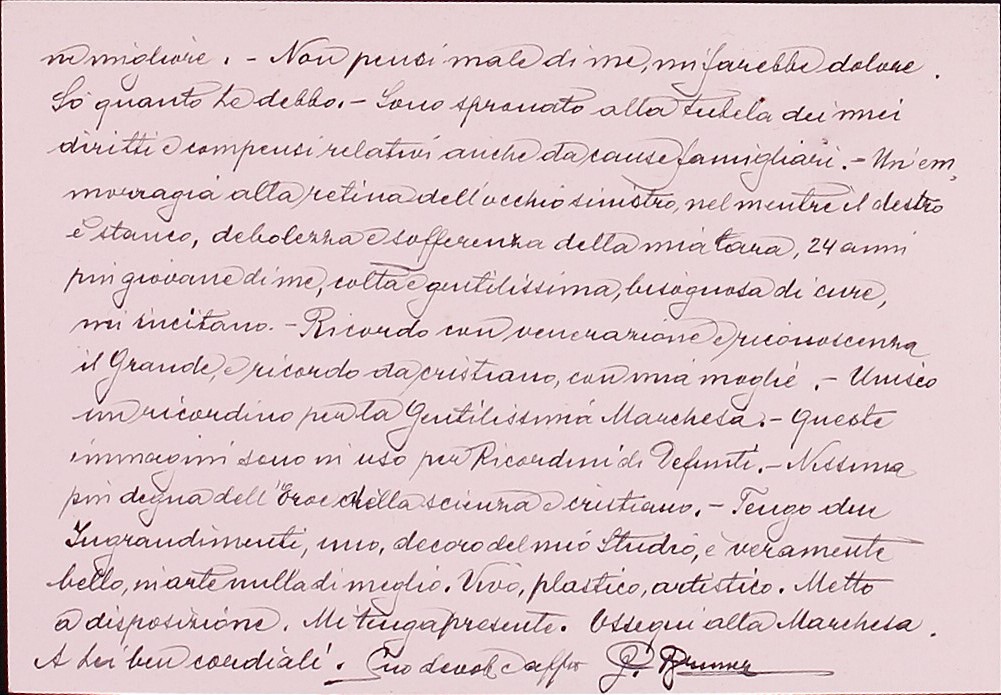 m migliore. - Non pensi male di me, mi farebbe dolore.
So quanto Le debbo. - Sono spronato alla tutela dei miei
diritti e compensi relativi anche da cause famigliari. - Un'em,
morragia alla retina dell'occhio sinistro, nel mentre il destro
è stanco, debolezza e sofferenza della mia Cara, 24 anni
più giovane di me, colta e gentilissima, bisognosa di cure,
mi incitano. - Ricordo con venerazione e riconoscenza
il Grande, e ricordo da cristiano, con mia moglie. - Unisco
un ricordino per la Gentilissima Marchesa. - Queste
immagini sono in uso per Ricordini di Defunti. - Nessuna
più degna dell'Eroe della scienza e cristiano. - Tengo due
Ingrandimenti, uno, decoro del mio Studio, è veramente
bello, in arte nulla di meglio. Vivo, plastico, artistico. Metto
a disposizione. Mi tenga presente. Ossequi alla Marchesa.
A Lei ben cordiali. Suo devot e affto G. Brunner